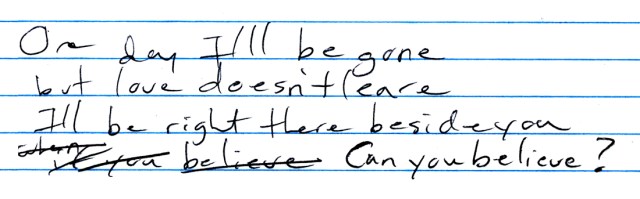 One day I'll be gone
but love doesn't leave
I'll be right there beside you
when you believe Can you believe?